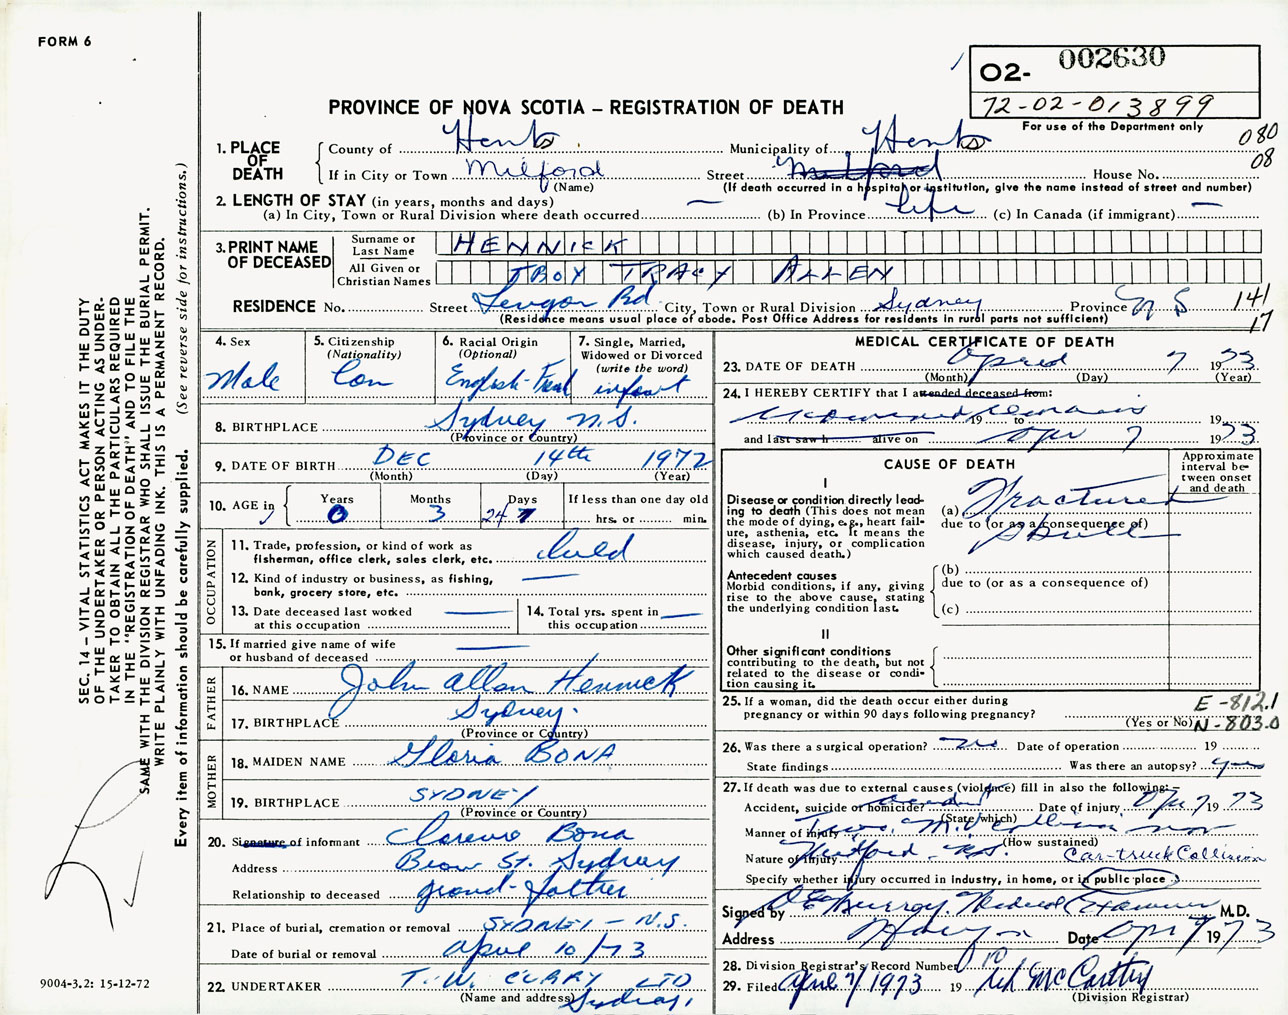 FORM 6
O2- 002630
72-02-013899
For use of the Department only
PROVINCE OF NOVA SCOTIA – REGISTRATION OF DEATH
080
08
1. PLACE OF DEATH
County of Hants Municipality of Hants
If in City or Town Milford Street Milford House No.
(Name) (If death occurred in a hospital or institution, give the name instead of street and number)
2. LENGTH OF STAY (in years, months and days)
(a) In City, Town or Rural Division where death occurred — (b) In Province life (c) In Canada (if immigrant) —
3. PRINT NAME OF DECEASED
Surname or Last Name HENNICK
All Given or Christian Names TROY TRACY ALLEN
RESIDENCE No. Street Rd City, Town or Rural Division Sydney Province N S 141
(Residence means usual place of abode. Post Office Address for residents in rural parts not sufficient) 17
4. Sex
Male
5. Citizenship
(Nationality)
Can
6. Racial Origin
(Optional)
English-
7. Single, Married, Widowed or Divorced
(write the word)
infant
8. BIRTHPLACE Sydney N.S.
(Province or Country)
9. DATE OF BIRTH DEC 14th 1972
(Month) (Day) (Year)
10. AGE in Years Months Days If less than one day old
0 3 24 7 hrs. or min.
OCCUPATION
11. Trade, profession, or kind of work as
fisherman, office clerk, sales clerk, etc. Child
12. Kind of industry or business, as fishing,
bank, grocery store, etc. —
13. Date deceased last worked
at this occupation —
14. Total yrs. spent in
this occupation —
15. If married give name of wife
or husband of deceased —
FATHER
16. NAME John Allan Hennick
17. BIRTHPLACE Sydney.
(Province or Country)
MOTHER
18. MAIDEN NAME Gloria BONA
19. BIRTHPLACE SYDNEY
(Province or Country)
20. Signature of informant Clarence Bona
Address St. Sydney
Relationship to deceased grand-father
21. Place of burial, cremation or removal SYDNEY – N.S.
Date of burial or removal April 10/73
22. UNDERTAKER T.W. CURRY LTD
(Name and address) Sydney,
MEDICAL CERTIFICATE OF DEATH
23. DATE OF DEATH April 7 1973
(Month) (Day) (Year)
24. I HEREBY CERTIFY that I attended deceased from:
19 to 19
and last saw h alive on Apr 7 1973
CAUSE OF DEATH
Approximate interval between onset and death
I
Disease or condition directly leading to death (This does not mean the mode of dying, e.g., heart failure, asthenia, etc. It means the disease, injury, or complication which caused death.)
(a) Fractured
due to (or as a consequence of)
Skull
Antecedent causes
Morbid conditions, if any, giving rise to the above cause, stating the underlying condition last.
(b)
due to (or as a consequence of)
(c)
II
Other significant conditions
contributing to the death, but not related to the disease or condition causing it.
25. If a woman, did the death occur either during
pregnancy or within 90 days following pregnancy? (Yes or No)
E-812.1
N-803.0
26. Was there a surgical operation? no Date of operation 19
State findings Was there an autopsy? yes
27. If death was due to external causes (violence) fill in also the following:
Accident, suicide or homicide? accident Date of injury Apr 7 1973
(State which)
Manner of injury M.V. Collision near
(How sustained)
Nature of injury Milford N.S. Car-truck Collision
Specify whether injury occurred in industry, in home, or in public place
Signed by Murray. Medical Examiner M.D.
Address Date Apr 7 1973
28. Division Registrar's Record Number 10
29. Filed April 7/1973 19 McCarthy
(Division Registrar)
SEC. 14 – VITAL STATISTICS ACT MAKES IT THE DUTY
OF THE UNDERTAKER OR PERSON ACTING AS UNDER-
TAKER TO OBTAIN ALL THE PARTICULARS REQUIRED
IN THE "REGISTRATION OF DEATH" AND TO FILE THE
SAME WITH THE DIVISION REGISTRAR WHO SHALL ISSUE THE BURIAL PERMIT.
WRITE PLAINLY WITH UNFADING INK. THIS IS A PERMANENT RECORD.
Every item of information should be carefully supplied. (See reverse side for instructions.)
9004-3.2: 15-12-72